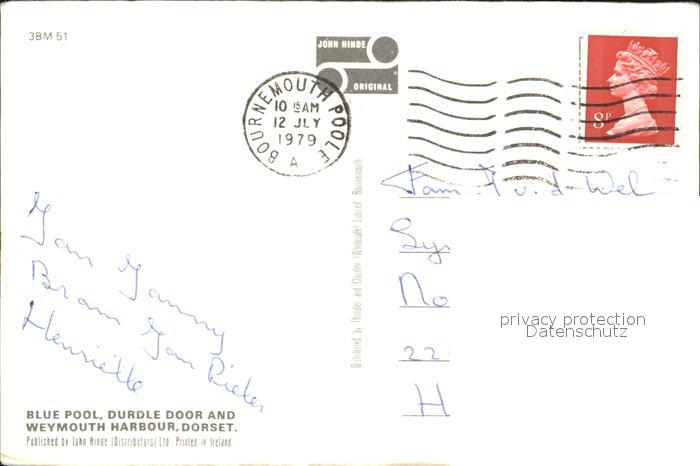 3BM 51
JOHN HINDE
ORIGINAL
BOURNEMOUTH POOLE
10 15 AM
12 JLY
1979
A
8P
Fam. v.d. Wel
Sy
No
22
H
privacy protection
Datenschutz
Jan Janny
Bram Jan Pieter
Henriette
Distributed by Thunder and Clayden (Wholesale) Limited, Bournemouth
BLUE POOL, DURDLE DOOR AND
WEYMOUTH HARBOUR, DORSET.
Published by John Hinde (Distributors) Ltd. Printed in Ireland